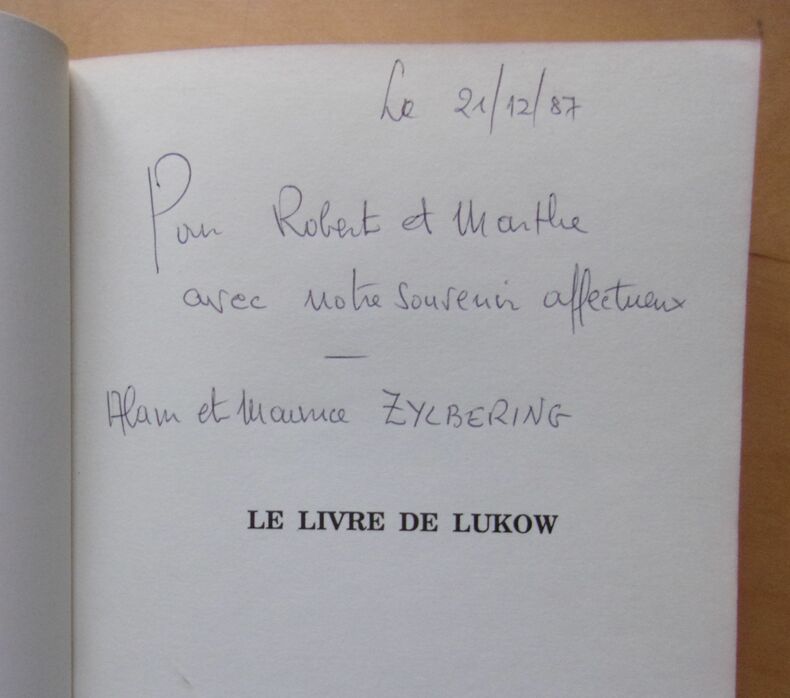 Le 21/12/87
Pour Robert et Marthe
avec notre souvenir affectueux
—
Alain et Maurice ZYLBERING
LE LIVRE DE LUKOW